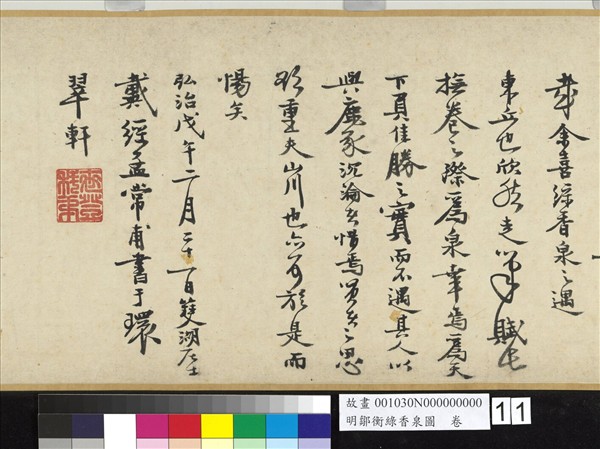 哉余喜綠香泉之遇
東丘也欣然走筆賦
撫卷之際為泉幸焉為天
下負佳勝之實而不遇其人以
與塵豕沉淪者惜焉之思
重夫山川也亦可於是而
惕矣
弘治戊午二月二十一日雙湖居士
戴經孟常甫書于環
翠軒
故畫 001030N000000000
明鄒衡綠香泉圖 卷
11